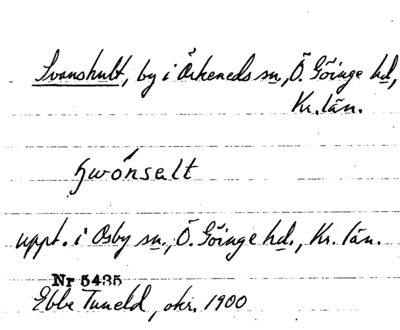 Svanshult, by i Örkeneds sn., Ö. Göinge hd.,
Kr. län.
uppt. i Osby sn., Ö. Göinge hd., Kr. län.
Nr 5435
Ebbe Tuneld, okr. 1900